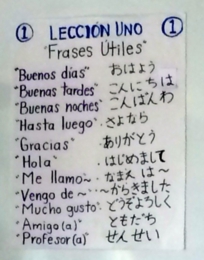 ① LECCIÓN UNO ①
"Frases Útiles"
"Buenos días" おはよう
"Buenas tardes" こんにちは
"Buenas noches" こんばんわ
"Hasta luego" さよなら
"Gracias" ありがとう
"Hola" はじめまして
"Me llamo~ なまえ は〜
"Vengo de~ 〜からきました
"Mucho gusto" どうぞよろしく
"Amigo(a)" ともだち
"Profesor(a)" せんせい